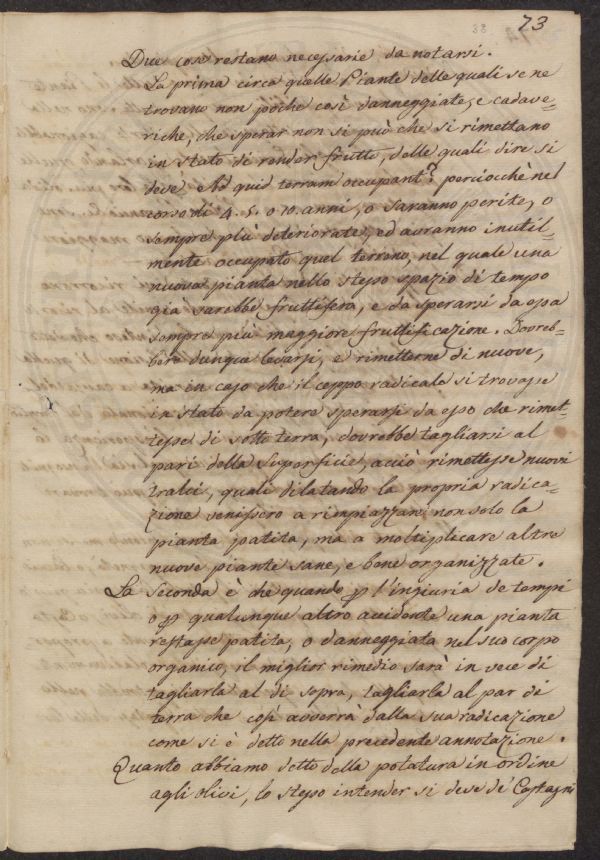 73
Due cose restano necessarie da notarsi.
La prima circa quelle Piante delle quali se ne
trovano non poche così danneggiate, e cadave=
riche, che sperar non si può che si rimettano
in stato di render frutto, delle quali dire si
deve Ad quid terram occupant? perciocchè nel
corso di 4. 5. o 10. anni, o saranno perite, o
sempre più deteriorate, ed avranno inutil=
mente occupato quel terreno, nel quale una
nuova pianta nello stesso spazio di tempo
già sarebbe fruttifera, e da sperarsi da essa
sempre più maggiore fruttificazione. Dovreb=
bere dunque levarsi, e rimetterne di nuove,
ma in caso che il ceppo radicale si trovasse
in stato da potere sperarsi da esso che rimet=
tesse di sotto terra, dovrebbe tagliarsi al
pari della Superficie, acciò rimettesse nuovi
tralci, quali dilatando la propria radica=
zione venissero a rimpiazzare non solo la
pianta patita, ma a moltiplicare altre
nuove piante sane, e bene organizzate.
La Seconda è che quando p l'ingiuria de tempi
o p qualunque altro accidente una pianta
restasse patita, o danneggiata nel suo corpo
organico, il miglior rimedio sarà in vece di
tagliarla al di sopra, tagliarla al par di
terra che così avverrà dalla sua radicazione
come si è detto nella precedente annotazione.
Quanto abbiamo detto della potatura in ordine
agli olivi, lo stesso intender si deve de' Castagni